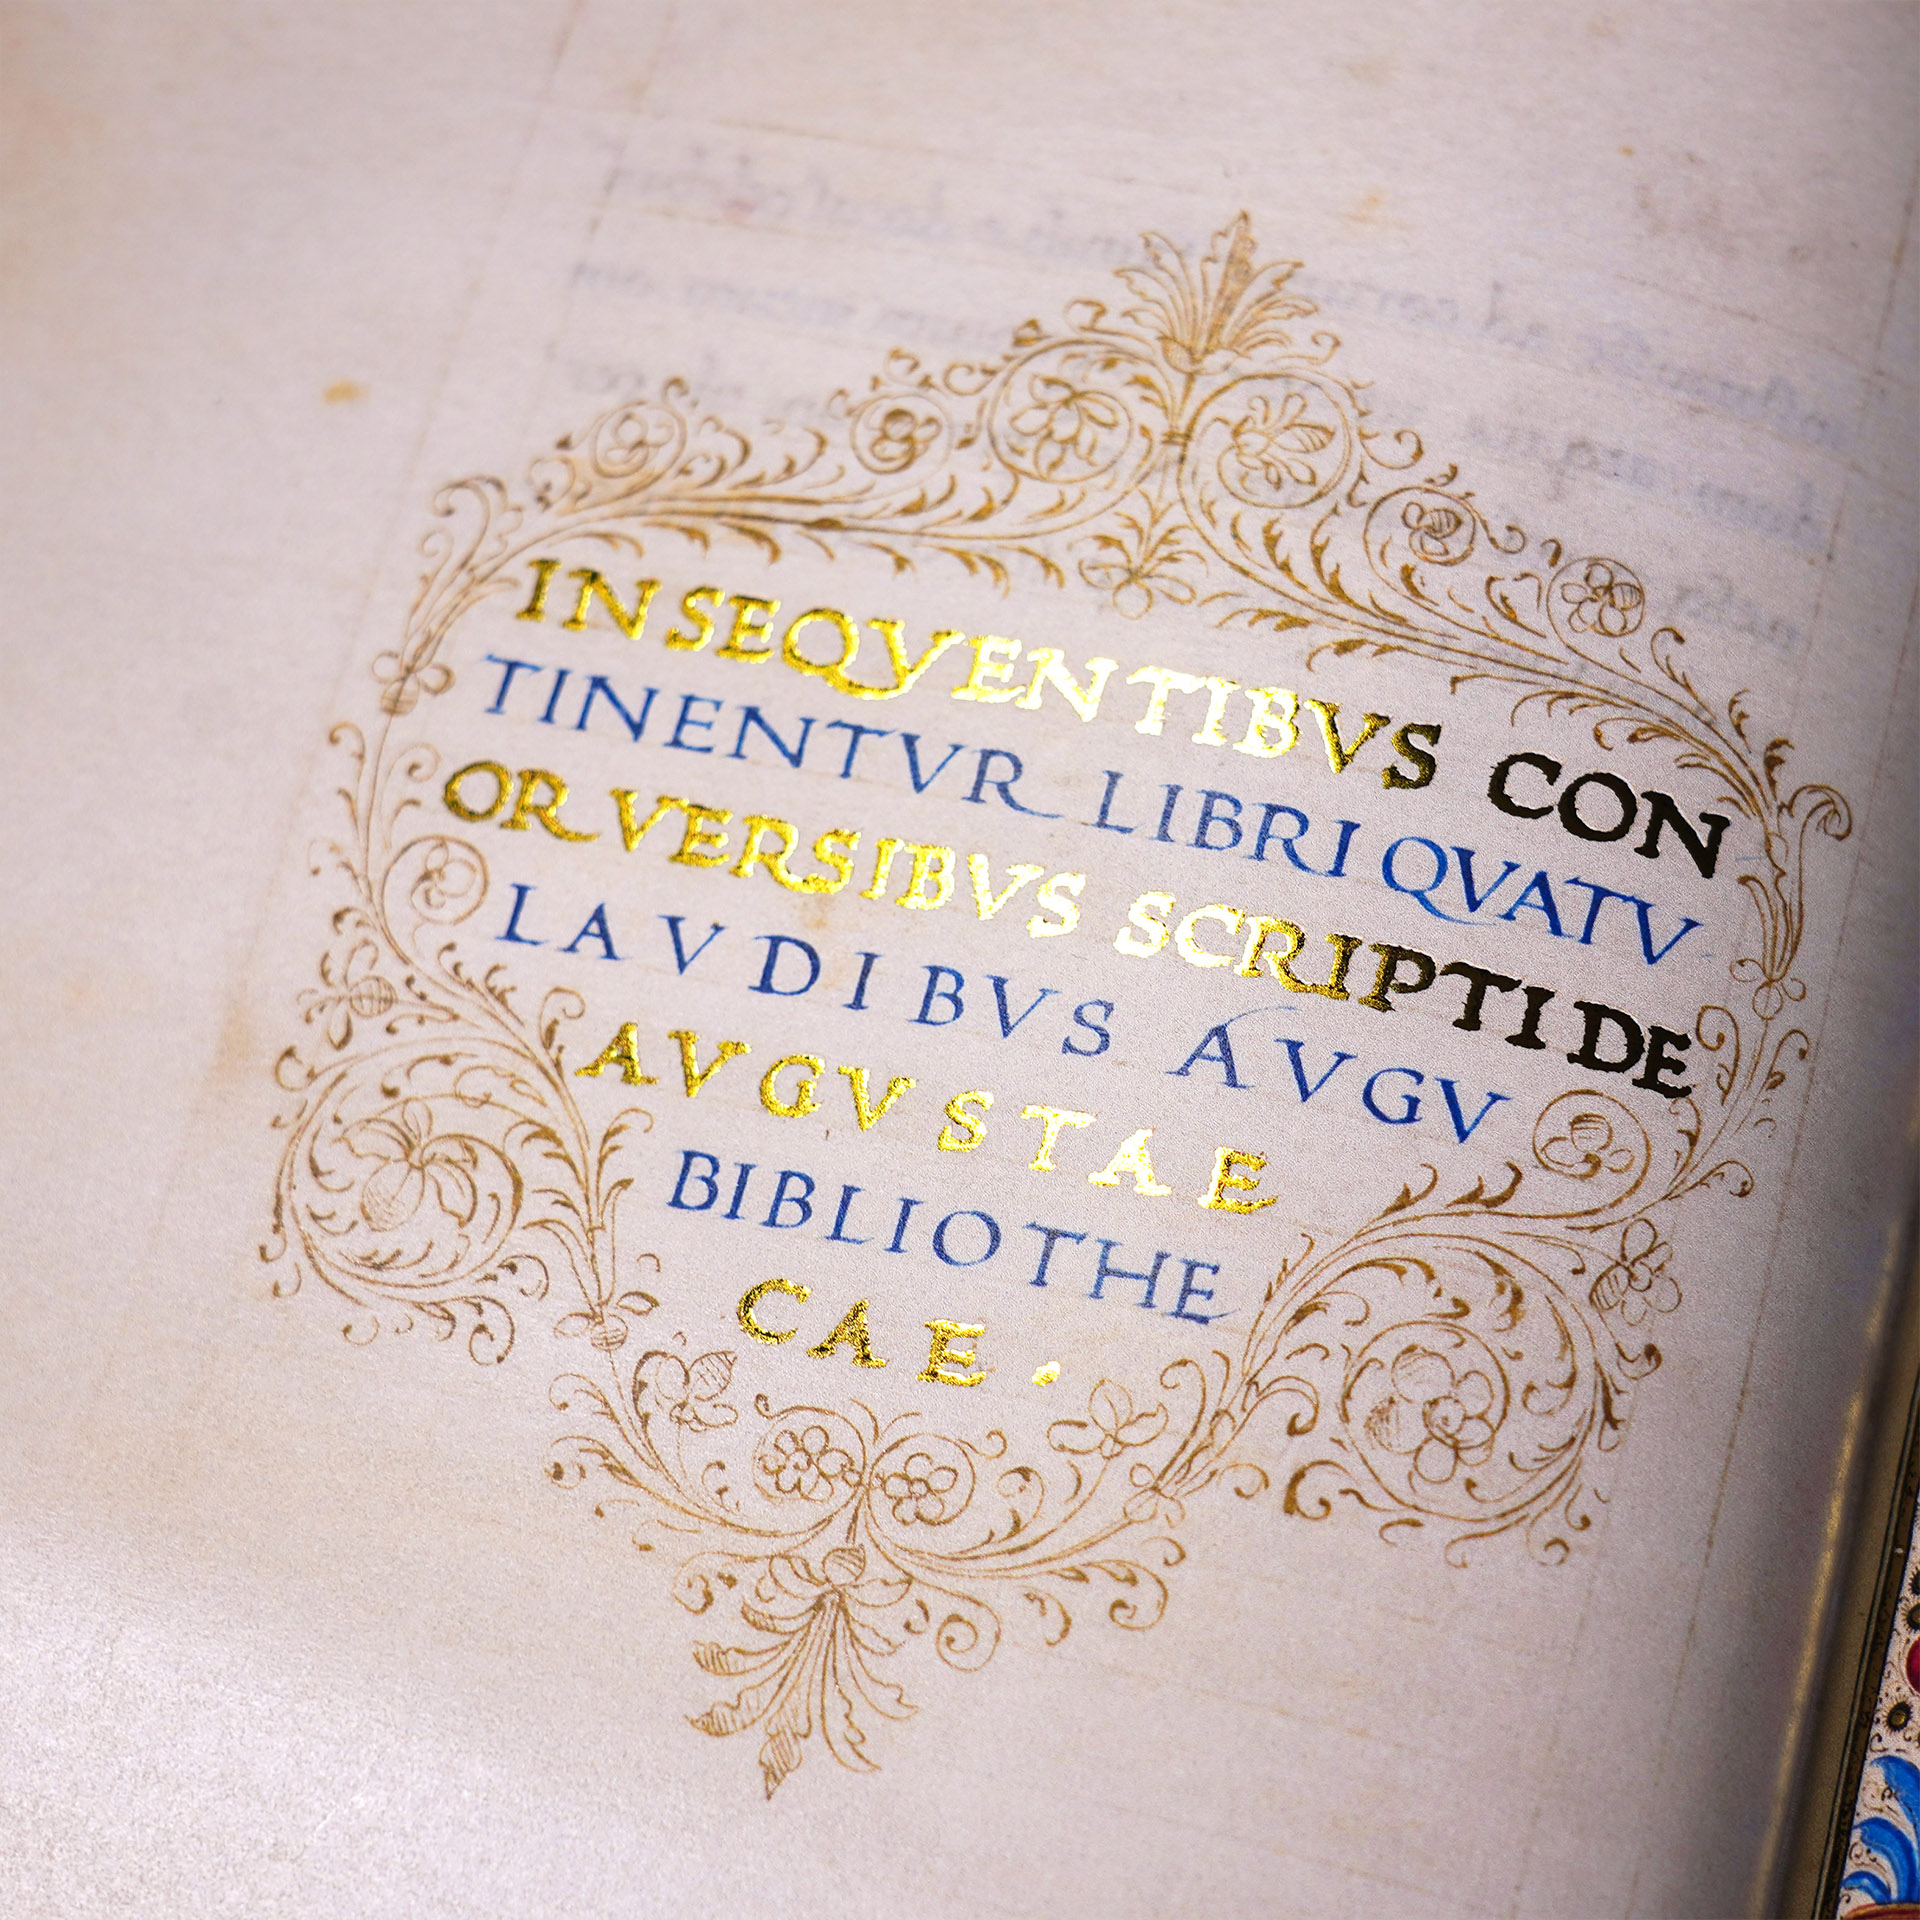 IN SEQVENTIBVS CON
TINENTVR LIBRI QVATV
OR VERSIBVS SCRIPTI DE
LAVDIBVS AVGV
AVGVSTAE
BIBLIOTHE
CAE.